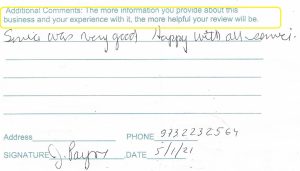 Additional Comments: The more information you provide about this
business and your experience with it, the more helpful your review will be.
Service was very good Happy with all servi.
Address PHONE 9732232564
SIGNATURE J. Payor DATE 5/1/21